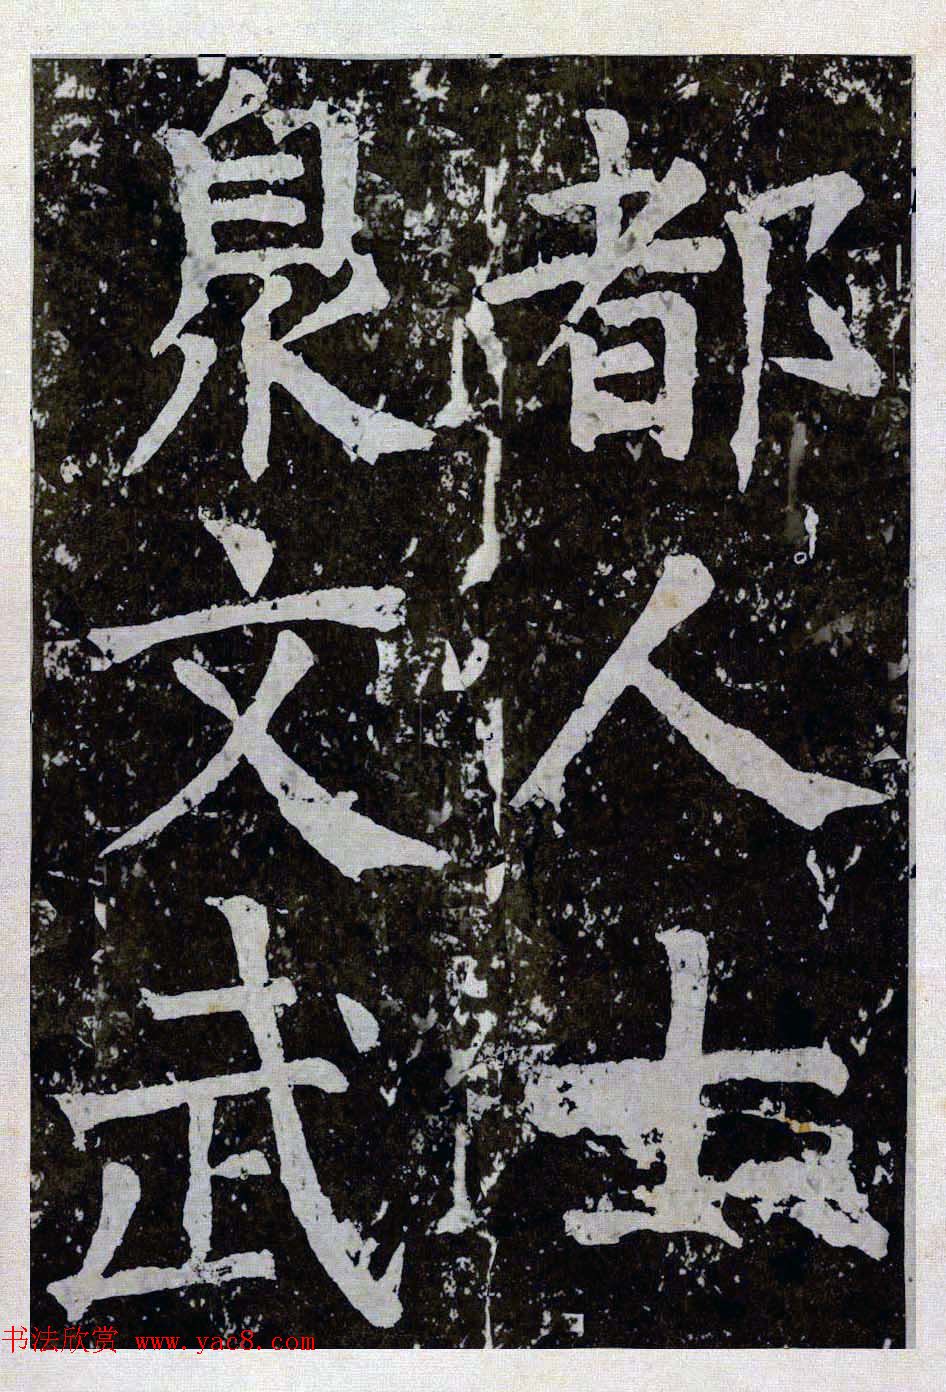 都人士
臮文武
书法欣赏 www.yac8.com